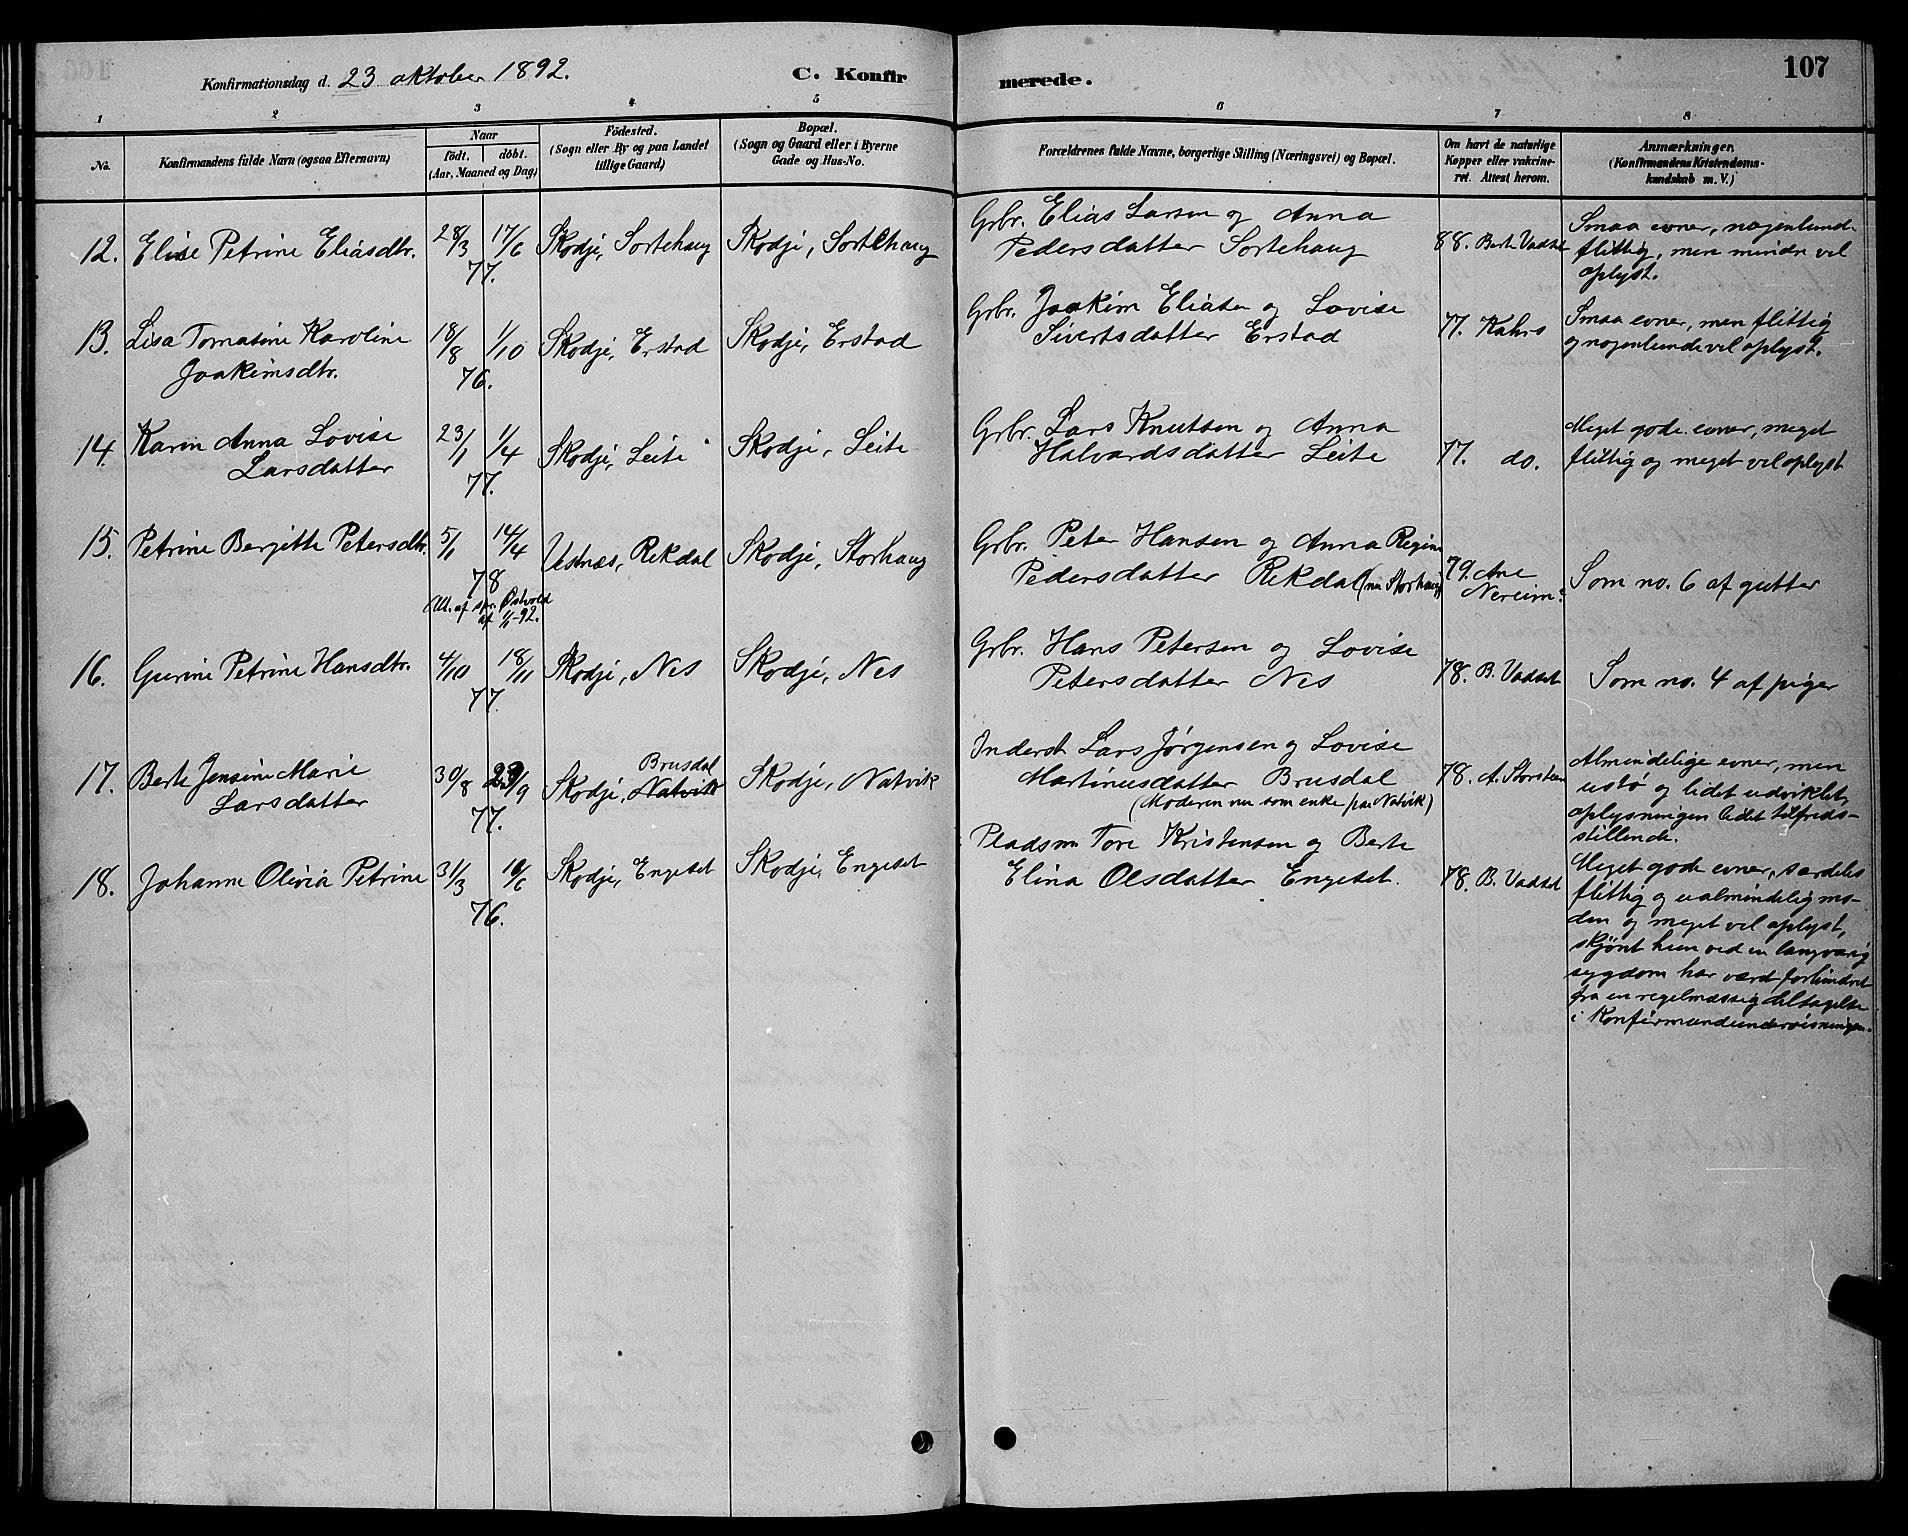 Konfirmationsdag d. 23 oktober 1892.
C. Konfirmerede.
107
1 2 3 4 5 6 7 8
No.
Konfirmandens fulde Navn (ogsaa Efternavn)
Naar
födt. döbt.
(Aar, Maaned og Dag)
Födested.
(Sogn eller By og paa Landet
tillige Gaard)
Bopæl.
(Sogn og Gaard eller i Byerne
Gade og Hus-No.
Forældrenes fulde Navne, borgerlige Stilling (Næringsvei) og Bopæl.
Om havt de naturlige
Kopper eller vakcine-
ret. Attest herom.
Anmærkninger.
(Konfirmandens Kristendoms-
kundskab m. V.)
12. Elise Petrine Eliasdtr. 28/3 17/6 77. Skodje, Sortehaug Skodje, Sortehaug
Grbr. Elias Larsen og Anna
Pedersdatter Sortehaug
88. Berte Vadset
Smaa evner, nogenlunde
flittig, men mindre vel
oplyst.
13. Lisa Tomasine Karoline
Joakimsdtr.
18/8 1/10 76. Skodje, Erstad Skodje, Erstad
Grbr. Joakim Eliasen og Lovise
Sivertsdatter Erstad
77. Kahrs
Smaa evner, men flittig
og nogenlunde vel oplyst.
14. Karin Anna Lovise
Larsdatter
23/1 1/4 77. Skodje, Leite Skodje, Leite
Grbr. Lars Knutsen og Anna
Halvardsdatter Leite
77. do.
Meget gode evner, meget
flittig og meget vel oplyst
15. Petrine Bergitte Petersdtr. 5/1 14/4 78
Utl. af spr. Østvold
af 1/1-92.
Vestnæs, Rekdal Skodje, Storhaug
Grbr. Peter Hansen og Anna Regine
Pedersdatter Rekdal (nu Storhaug)
79. Ane
Nereim
Som no. 6 af gutter
16. Gurine Petrine Hansdtr. 4/10 18/11 77. Skodje, Nes Skodje, Nes
Grbr. Hans Petersen og Lovise
Petersdatter Nes
78. B. Vadset
Som no. 4 af piger
17. Berte Jensine Marie
Larsdatter
30/8 23/9 77. Brusdal
Skodje, Natvik Skodje, Natvik
Inderst Lars Jørgensen og Lovise
Martinusdatter Brusdal
(Moderen nu som enke paa Natvik)
78. A. Storsteen
Almindelige evner, men
ustø og lidet udviklet,
oplysningen lidet tilfreds-
stillende.
18. Johanne Olivia Petrine 31/3 10/6 76. Skodje, Engeset Skodje, Engeset
Pladsm Tore Kristensen og Berte
Elina Olsdatter Engeset.
78. B. Vadset
Meget gode evner, særdeles
flittig og ualmindelig mo-
den og meget vel oplyst,
skjønt hun ved en langvarig
sygdom har været forhindret
fra en regelmæssig deltagelse
i Konfirmandundervisningen.